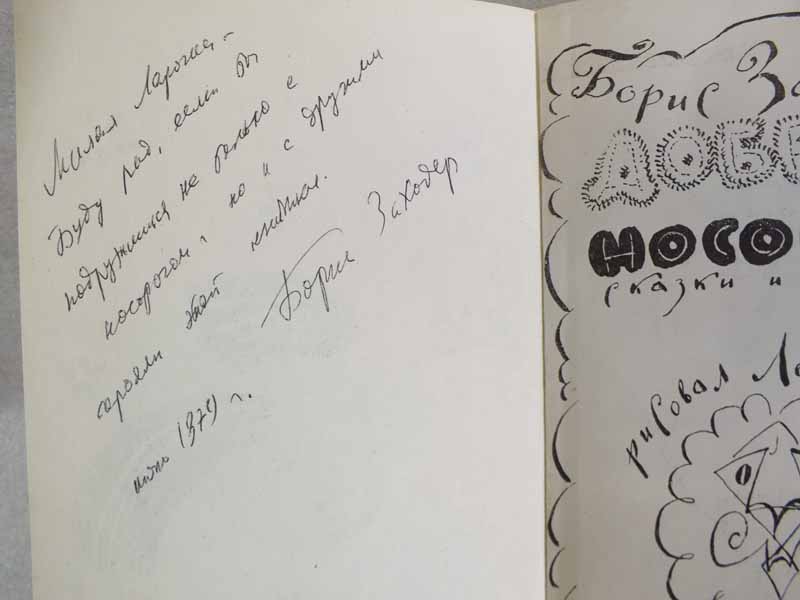 Милая Ларочка –
Буду рад, если бы
подружишься не только с
носорогом, но и с другими
героями этой книжки.
Борис Заходер
1979 г.
Борис За
ДОБР
НОСО
сказки и
рисовал Ле